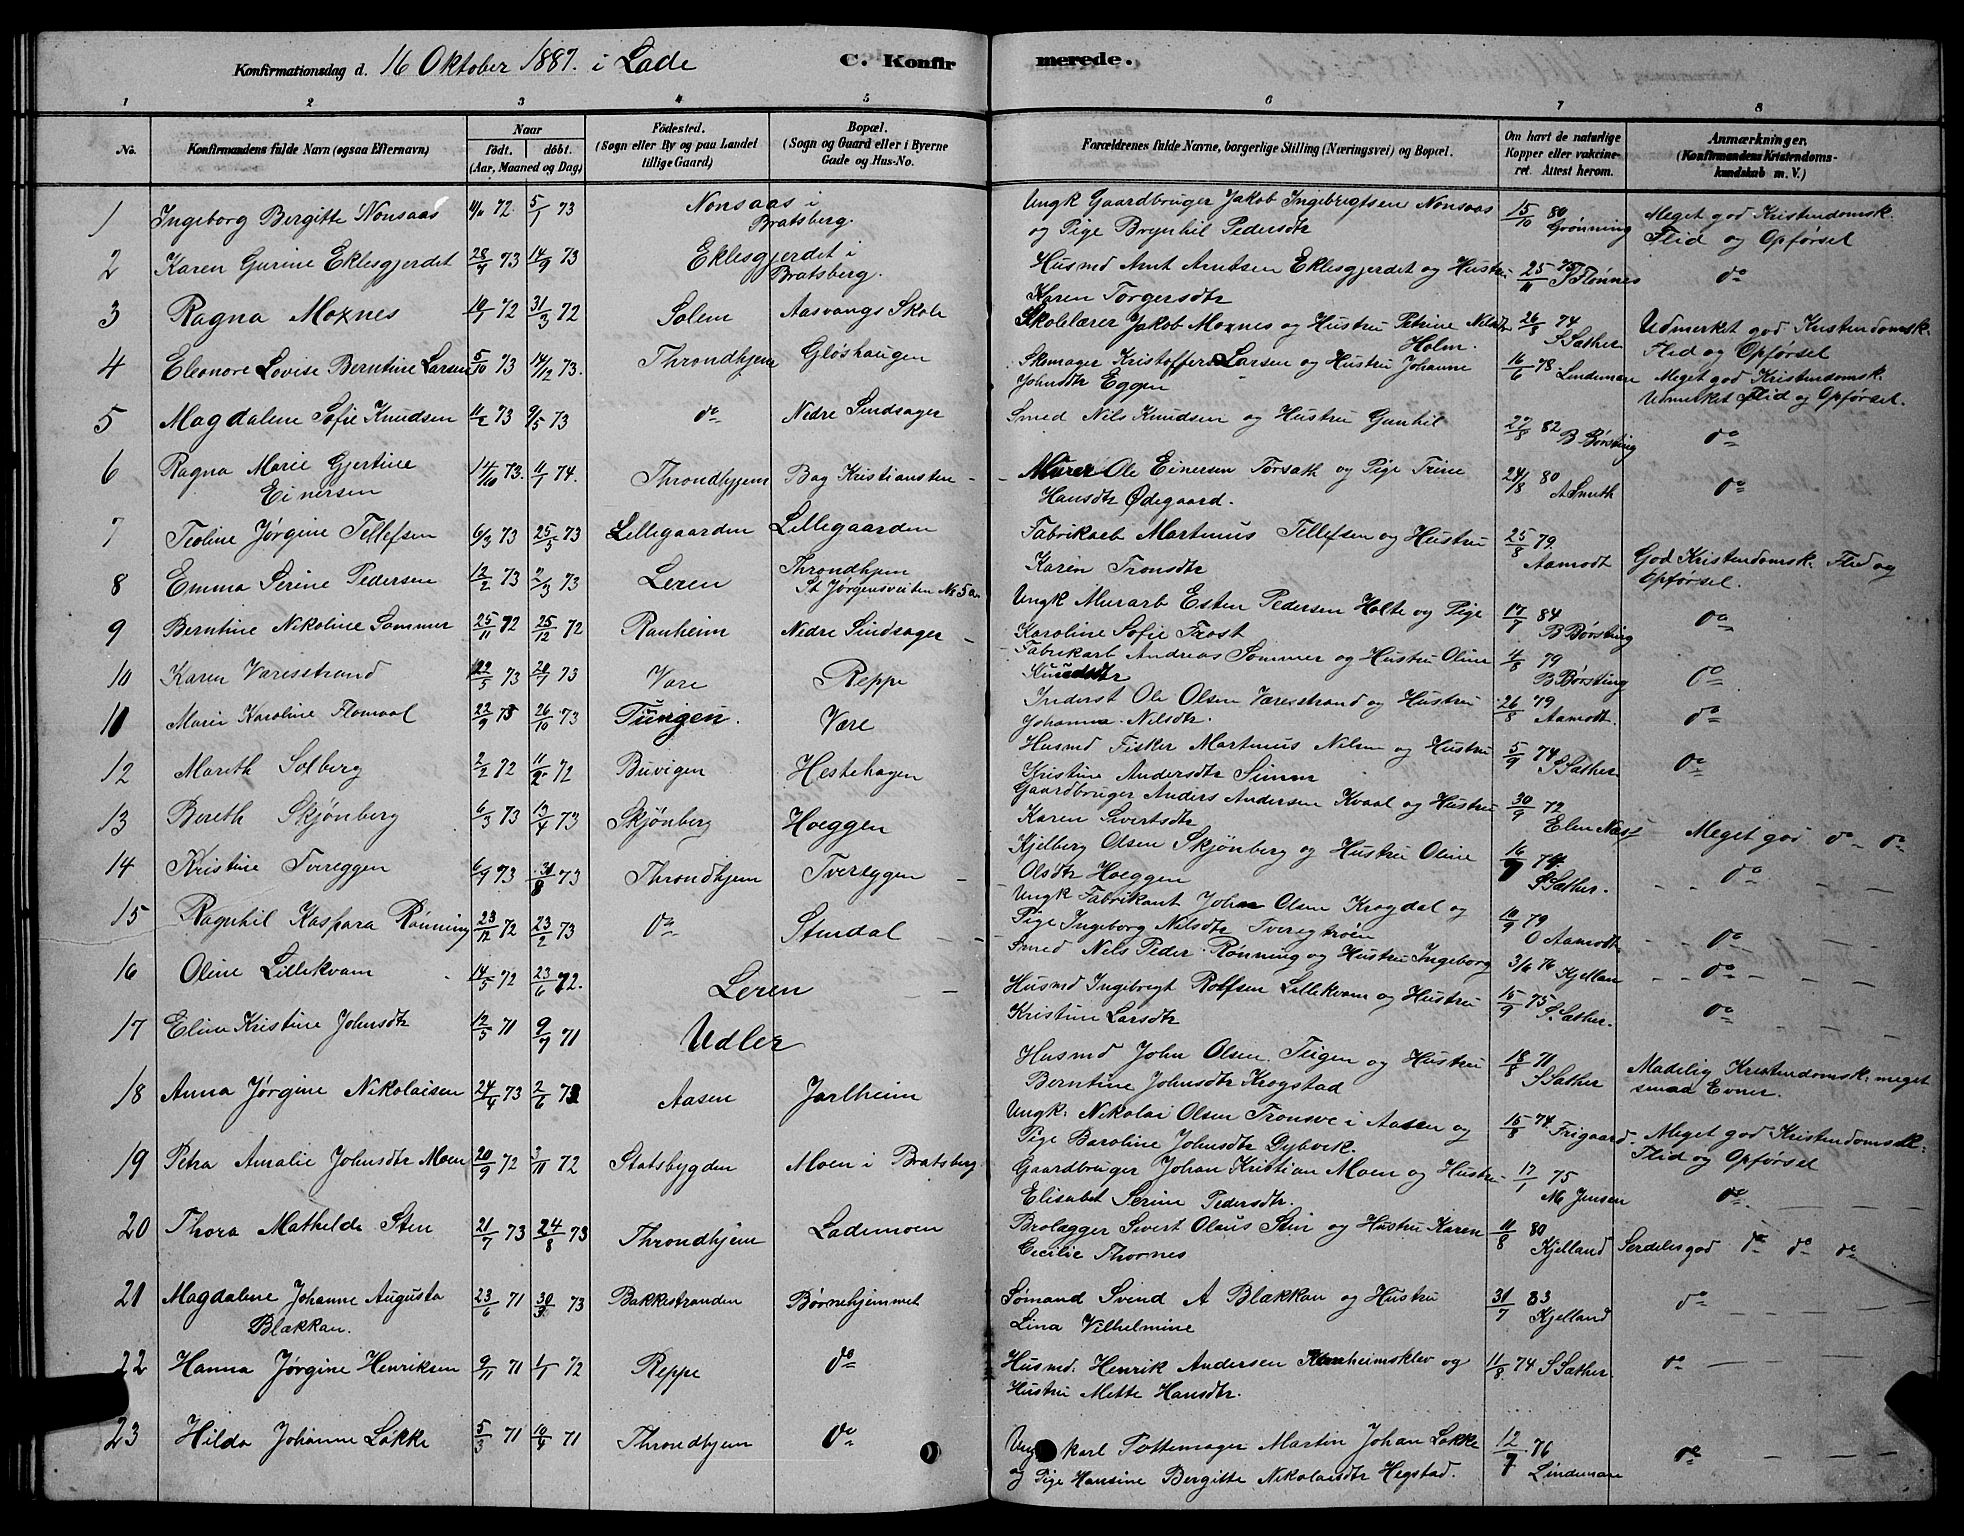 Konfirmationsdag d. 16 Oktober 1887. i Lade C. Konfirmerede.
1 2 3 4 5 6 7 8
No. Konfirmandens fulde Navn (ogsaa Efternavn) Naar født. døbt. (Aar, Maaned og Dag) Fødested. (Sogn eller By og paa Landet tillige Gaard) Bopæl. (Sogn og Gaard eller i Byerne Gade og Hus-No. Forældrenes fulde Navne, borgerlige Stilling (Næringsvei) og Bopæl. Om havt de naturlige Kopper eller vaccineret. Attest herom. Anmærkninger. (Konfirmandens Kristendomskundskab m. V.)
1 Ingeborg Bergitte Nonsaas 11/11 72. 5/1 73 Nonsaas i Bratsberg. Ungk Gaardbruger Jakob Ingebrigtsen Nonsaas og Pige Brynhil Pedersdtr 15/10 80 Grønning Meget god Kristendomsk. Flid og Opførsel
2 Karen Gurine Eklesgjerdet 28/7 73 14/9 73 Eklesgjerdet i Bratsberg. Husmd Arnt Arntsen Eklesgjerdet og Hustru Karen Torgersdtr 25/11 Flønnes do
3 Ragna Moxnes 10/1 72 31/3 72 Solem Aasvangs Skole Skolelærer Jakob Moxnes og Hustru Petrine Nilsdtr Holm. 26/8 74 S Sæther Udmerket god Kristendomsk. Flid og Opførsel
4 Eleonore Lovise Berntine Larsen 5/10 73 14/12 73. Throndhjem Gløshaugen Skomager Kristoffer Larsen og Hustru Johanne Johnsdtr Eggen 16/6 78 Lindeman Meget god Kristendomsk. Udmerket Flid og Opførsel.
5 Magdalene Sofie Knudsen 11/2 73 9/5 73 do Nedre Sindsager Smed Nils Knudsen og Hustru Gunhil 27/8 82 B Børsting do
6 Ragna Marie Gjertine Einersen 14/10 73. 11/1 74. Throndhjem Bag Kristiansten Murer Ole Einersen Torsath og Pige Trine Hansdtr Ødegaard. 24/8 80 A Smith do
7 Teoline Jørgine Tellefsen 6/3 73 25/5 73 Lillegaarden Lillegaarden Fabrikarb Martinus Tellefsen og Hustru Karen Tronsdtr 25/8 79. Aamodt God Kristendomsk. Flid og Opførsel.
8 Emma Serine Pedersen 12/2 73 2/3 73 Leren Throndhjem St Jørgensveiten No 5a Ungk Murarb Esten Pedersen Holte og Pige Karoline Sofie Frost 17/7 84 B Børsting do
9 Berntine Nikoline Sommer 25/11 72 25/12 72 Ranheim Nedre Sindsager Fabrikarb Andreas Sommer og Hustru Oline Knudsdtr 4/8 79 B Børsting do
10 Karen Væresstrand 22/5 73 20/7 73 Være Reppe Inderst Ole Olsen Væresstrand og Hustru Johanna Nilsdtr. 26/8 79 Aamodt. do
11 Marie Karoline Flomaal 22/9 73 26/10 73 Tungen. Være Husmd Fisker Martinus Nilsen og Hustru Kristine Andersdtr 5/9 74 S Sæther do
12 Mareth Solberg 2/2 72 11/2 72 Buvigen Hestehagen Gaardbruger Anders Andersen Kvaal og Hustru Karen Sivertsdtr 30/9 72 Elen Næss
13 Bereth Skjønberg 6/3 73 13/4 73 Skjønberg Hoeggen Kjelberg Olsen Skjønberg og Hustru Oline Olsdtr Hoeggen 16/7 74 S Sæther. Meget god do do
14 Kristine Tvereggen 6/7 73 31/8 73 Throndhjem Tvereggen Ungk Fabrikant John Olsen Krogdal og Pige Ingeborg Nilsdtr 10/9 79 O Aamodt do
15 Ragnhil Kaspara Rønning 23/12 72 23/2 73 do Stendal Smed Nils Peder Rønning og Hustru Ingeborg 3/6 76 Kjelland do
16 Oline Lillekvam 14/5 72 23/6 72. Leren Husmd Ingebrigt Rolfsen Lillekvam og Hustru Kristine Larsdtr 15/9 75 S. Sæther. do
17 Eline Kristine Johnsdtr 12/5 71 9/7 71 Udler Husmd John Olsen Teigen og Hustru Berntine Johnsdtr Krogstad 18/8 71 S Sæther Madelig Kristendomsk. meget smaa Evner.
18 Anna Jørgine Nikolaisen 24/4 73 2/6 73 Aasen Jarlheim Ungk. Nikolai Olsen Tronsve i Aasen og Pige Baroline Johnsdtr Dybvik. 15/8 74 Frigaard. Meget god Kristendomsk. Flid og Opførsel
19 Petra Amalie Johnsdtr Moen 20/9 72 3/11 72 Statsbygden Moen i Bratsberg. Gaardbruger Johan Kristian Moen og Hustru Elisabet Serine Pedersdtr. 17/1 75 M Jensen do
20 Thora Mathilde Sten 21/7 73 24/8 73 Throndhjem Lademoen Brolægger Sivert Olaus Sten og Hustru Karen Cecilie Thornes 11/8 80 Kjelland Serdeles god do do do
21 Magdalene Johanne Augusta Blækkan. 23/6 71 30/3 73 Bakkestranden Børnehjemmet Sømand Svend A Blækkan og Hustru Lina Vilhelmine 31/7 83 Kjelland do
22 Hanna Jørgine Henriksen 9/11 71 1/1 72 Reppe do Husmd. Henrik Andersen og Hustru Mette Hansdtr. 11/8 74 S Sæther do
23 Hilda Johanne Løkke 5/3 71 10/4 71 Throndhjem do Ungkarl Pottemager Martin Johan Løkke og Pige Hansine Bergitte Nikolaisdtr Hegstad. 12/7 76 Lindeman do